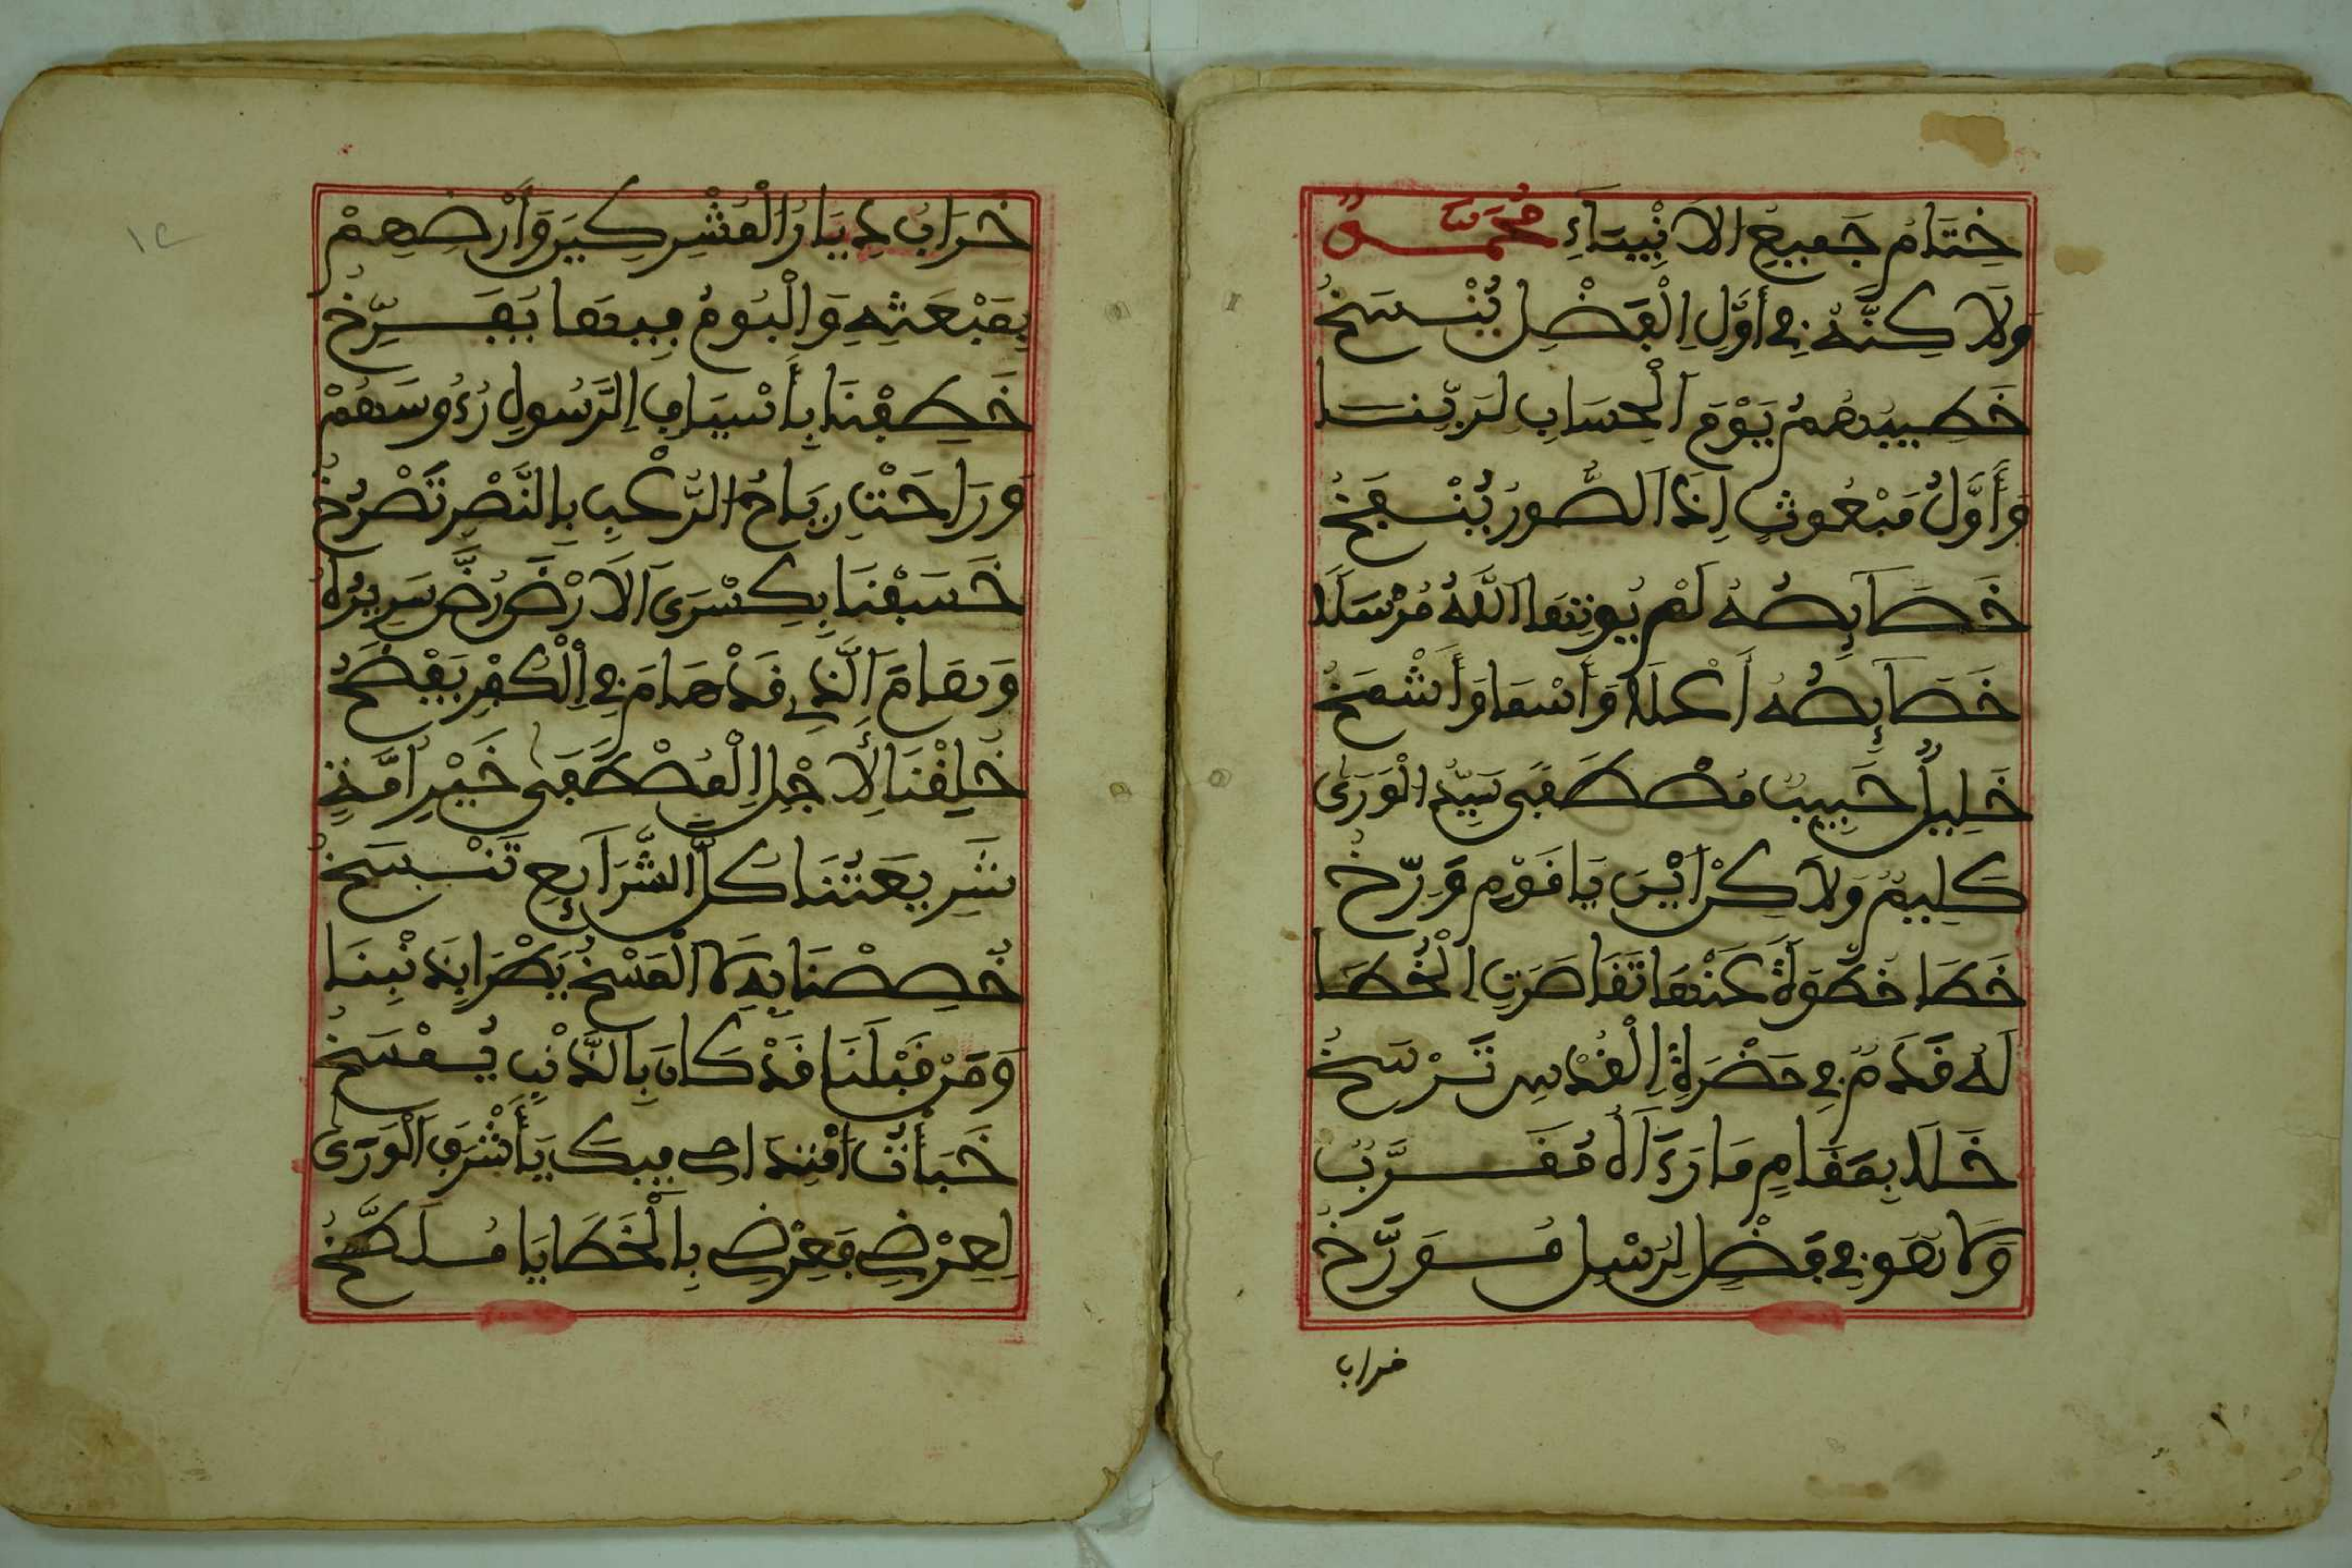 خِتَامُ جَمِيعِ الاَنْبِيَاءِ مُحَمَّدٌ
وَلَاكِنَّهُ فِي أَوَّلِ الْفَضْلِ يُنْسَخُ
خَطِيبُهُمُ يَوْمَ الْحِسَابِ لِرَبِّنَا
وَأَوَّلُ مَبْعُوثٍ اِذَا الصُّورُ يُنْفَخُ
خَصَايِصُهُ لَمْ يُوتِهَا اللَّهُ مُرْسَلَا
خَصَايِصُهُ أَعْلَا وَأَسْمَا وَأَشْمَخُ
خَلِيلٌ حَبِيبٌ مُصْطَفَى سَيِّدُ الْوَرَى
كَلِيمٌ وَلَاكِنْ اَيْنَ يَا قَوْمِ وَرِّخُ
خَطَا خَطْوَةً عَنْهَا تَقَاصَرَتِ الْخُطَا
لَهُ قَدَمٌ فِي حَضْرَةِ الْقُدْسِ تَرْسَخُ
خَلَا بِمَقَامٍ مَا رَءَاهُ مُقَرَّبٌ
وَلَا هُوَ فِي فَضْلٍ لِرُسْلِ مُوَرَّخُ
خراب
١٢
خَرَابُ دِيَارُ الْمُشْرِكِينَ وَأَرْضِهِمْ
بِمَبْعَثِهِ وَالْبُومُ فِيهَا يُفَرِّخُ
خَطِفْنَا بِأَسْيَافِ الرَّسُولِ رُءُوسَهُمْ
وَرَاحَتْ رِيَاحُ الرُّعْبِ بِالنَّصْرِ تَصْرُخُ
خَسَفْنَا بِكِسْرَى الاَرْضَ رُضَّ سَرِيرُهُ
وَهَامَ الَّذِي قَدْ هَامَ فِي الْكُفْرِ يَفْضَخُ
خُلِقْنَا لِأَجْلِ الْمُصْطَفَى خَيْرَ أُمَّةٍ
شَرِيعَتُنَا كُلَّ الشَّرَايِعِ تَنْسَخُ
خُصِصْنَا بِهِ لَا الْمَسْخُ يَطْرَا بِذَنْبِنَا
وَمَنْ قَبْلَنَا قَدْ كَانَ بِالذَّنْبِ يُمْسَخُ
خَبَأْتُ اَمْتِدَاحِي فِيكَ يَأَشْرَفَ الْوَرَى
لِعِرْضِي فَعِرْضِي بِالْخَطَايَا مُلَطَّخُ